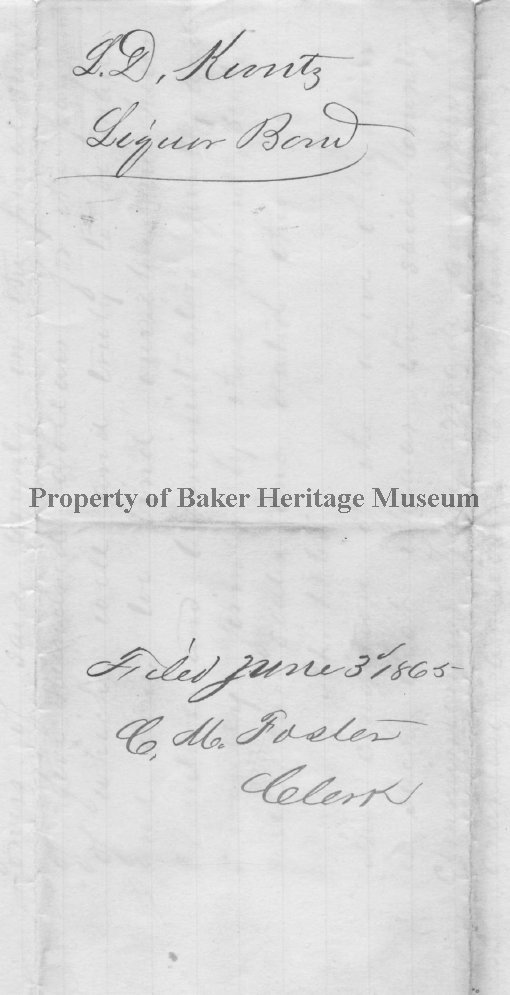 L. D, Kuntz
Liquor Bond
Property of Baker Heritage Museum
Filed June 3d 1865
C. M. Foster
Clerk